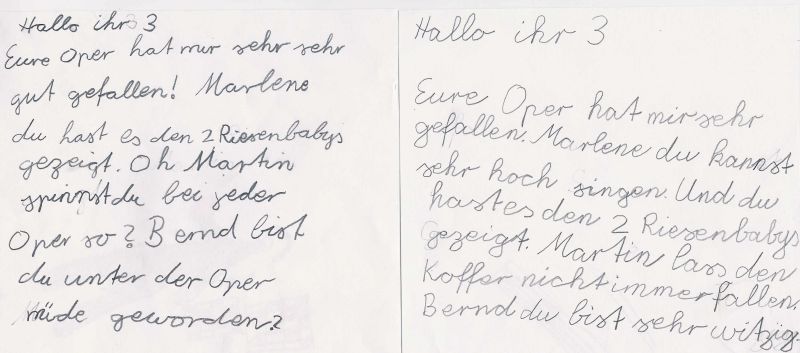 Hallo ihr 3
Eure Oper hat mir sehr sehr
gut gefallen! Marlene
du hast es den 2 Riesenbabys
gezeigt. Oh Martin
spinnst du bei jeder
Oper so? Bernd bist
du unter der Oper
müde geworden?
Hallo ihr 3
Eure Oper hat mir sehr
gefallen. Marlene du kannst
sehr hoch singen. Und du
hast es den 2 Riesenbabys
gezeigt. Martin lass den
Koffer nicht immer fallen.
Bernd du bist sehr witzig.